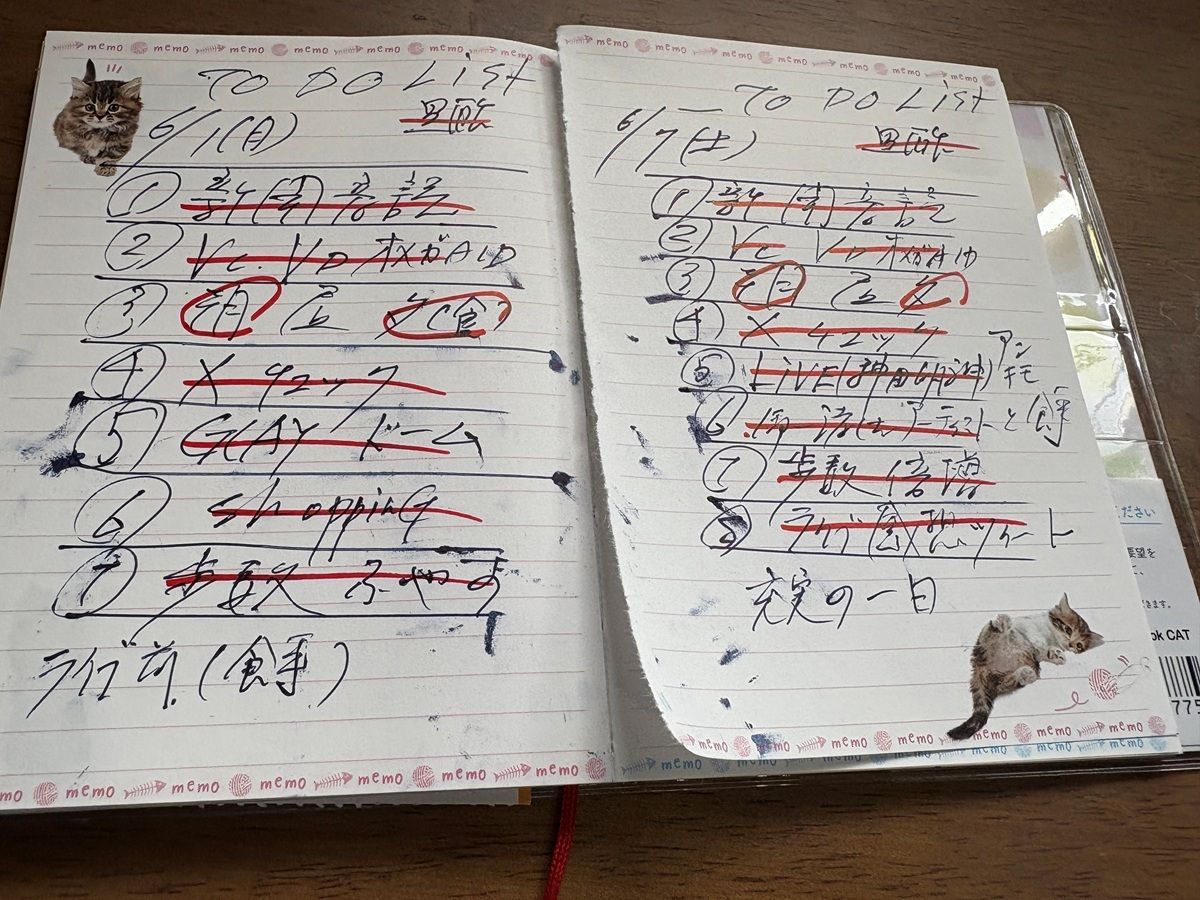 memo memo memo memo memo memo
TO DO LIST
6/1(月)
①
② VC. VD オメガAID
③ 朝 昼 夕(食)
④ X チェック
⑤ GLAY ドーム
⑥ shopping
⑦ 歩数 ふやす
ライブ前.(食事)
memo memo memo memo memo memo
memo memo memo memo memo
TO DO LIST
6/7(土)
①
② VC VD オメガAID
③ 朝 昼 夕
④ X チェック
⑤ LIVE(
アン
キモ
⑥ アーティストと食事
⑦ 歩数 倍増
⑧ ライブ感想ツイート
充実の一日
memo memo memo memo memo memo
ださい
要望を
ook CAT
775